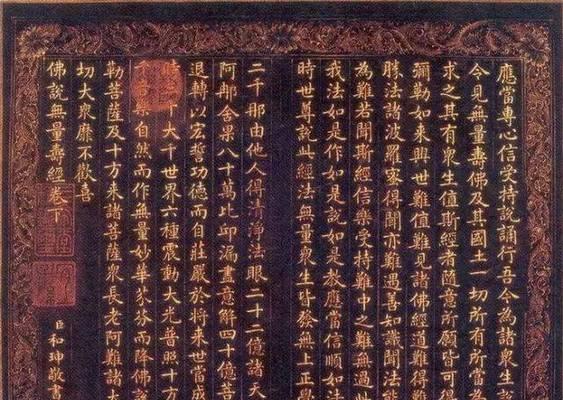 應當專心信受持說誦行吾今為諸衆生說
今見無量壽佛及其國土一切所有所當為
求之其有衆生值斯經者隨意所願皆可得
彌勒如來興世難值難見諸佛經道難得難
勝法諸波羅密得聞亦難遇善知識聞法能
為難若聞斯經信樂受持難中之難無過此
我法如是作如是說如是教應當信順如法
時世尊說此經法無量衆生皆發無上正覺
二千那由他人得清淨法眼二十二億諸天
阿那舍果八十萬比邱漏盡意解四十億菩
退轉以宏誓功德而自莊嚴於將來世當成
時千大千世界六種震動大光普照十方
樂自然而作無量妙華芬芬而降佛說
勒菩薩及十方來諸菩薩衆長老阿難諸大
切大衆靡不歡喜
佛說無量壽經卷下
臣和珅敬書